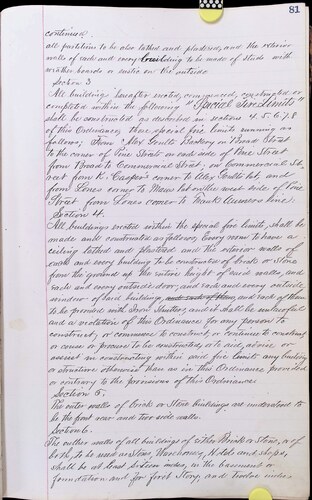 81
continued.
all partitions to be also lathed and plastered, and the exterior
walls of each and every building to be made of studs with
weather boards or rustic on the outside
Section 3
All buildings hereafter erected, commenced, constructed or
completed within the following "Special Fire Limits"
shall be constructed as described in sections 4, 5, 6, 7, 8
of this Ordinance, these special fire limits running as
follows; From Alex Goulls Bakery on Broad Street
to the corner of Pine Street on each side of Pine Street
from Broad to Commercial Street, on Commercial St-
reet from K. Caspers corner to Alex Goulls lot, and
from Lones corner to Mews lot on the west side of Pine
Street from Lones corner to Frank line.
Section 4.
All buildings erected within the special fire limits, shall be
made and constructed as follows, every room to have a
ceiling lathed and plastered and the exterior walls of
each and every building to be constructed of brick or Stone
from the ground up the entire height of said walls, and
each and every outside door, and each and every outside
window of said building, and each of them
to be provided with Iron Shutters, and it shall be unlawful
and a violation of this Ordinance for any person to
construct, or commence to construct, or continue to construct,
or cause or procure to be constructed, or to aid, advise or
assist in constructing within said fire limits any building
or structure otherwise than as in this Ordinance provided
or contrary to the provisions of this Ordinance
Section 5.
The outer walls of brick or Stone buildings are understood to
be the front rear and two side walls.
Section 6.
The outer walls of all buildings of either Brick or Stone, or of
both, to be used as Stores, Warehouses, Hotels and shops,
shall be at least sixteen inches, in the basement or
foundation and for first Story, and Twelve inches